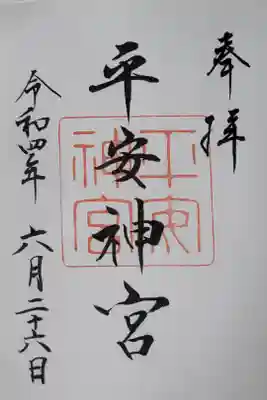 奉拝
平安神宮
平安
神宮
令和四年 六月二十六日